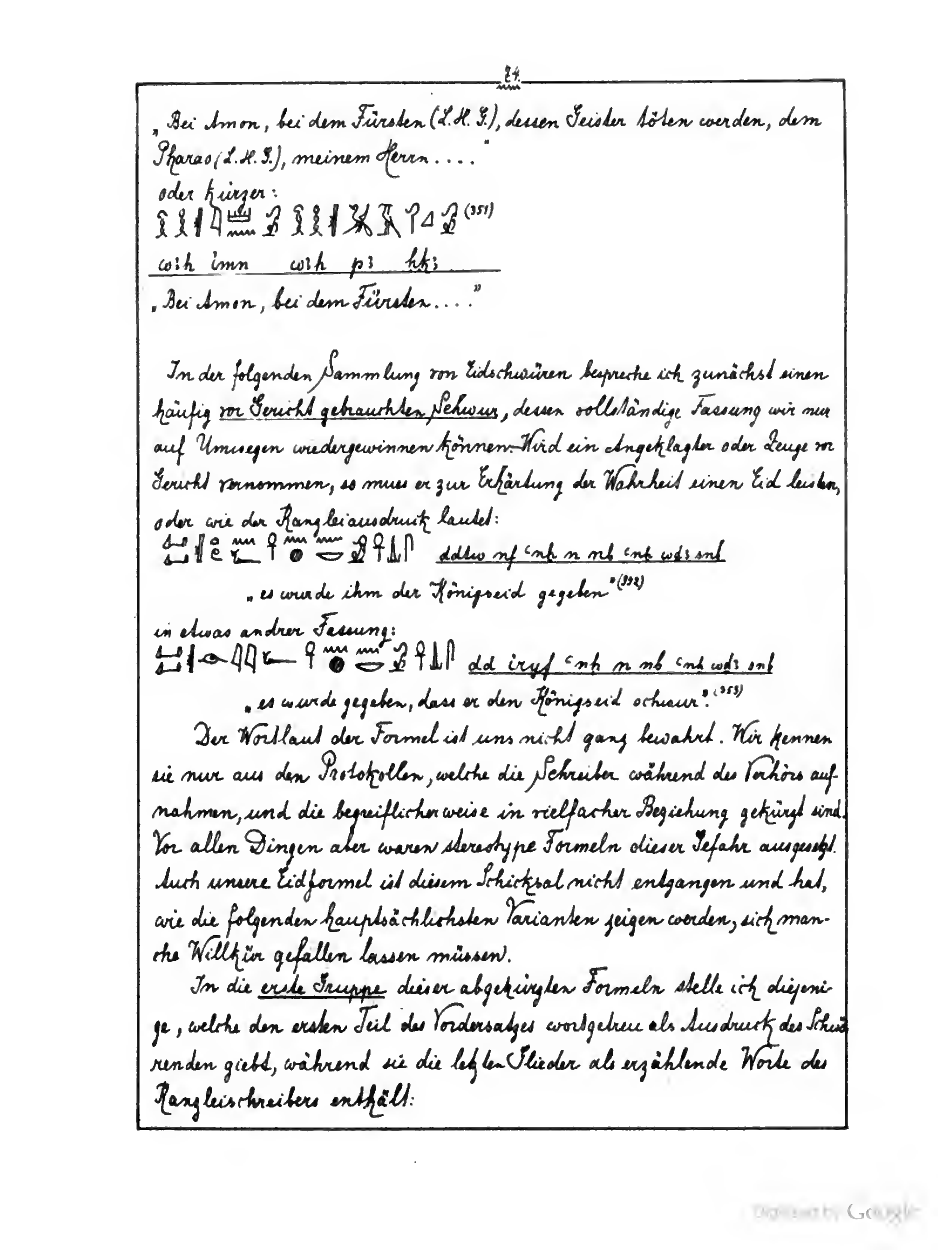 24.
„Bei Amon, bei dem Fürsten (L.H.G.), dessen Geister töten werden, dem
Pharao (L.H.G.), meinem Herrn ...."
oder kürzer:
(351)
wꜣḥ imn wꜣḥ pꜣ ḥḳꜣ
„Bei Amon, bei dem Fürsten ...."
In der folgenden Sammlung von Eidschwüren bespreche ich zunächst einen
häufig vor Gericht gebrauchten Schwur, dessen vollständige Fassung wir nur
auf Umwegen wiedergewinnen können. Wird ein Angeklagter oder Zeuge vor
Gericht vernommen, so muss er zur Erhärtung der Wahrheit einen Eid leisten,
oder wie der Kanzleiausdruck lautet:
ddtw nf ꜥnḫ n nb ꜥnḫ wḏꜣ snb
„es wurde ihm der Königseid gegeben" (352)
in etwas andrer Fassung:
dd iryf ꜥnḫ n nb ꜥnḫ wḏꜣ snb
„es wurde gegeben, dass er den Königseid schwur". (353)
Der Wortlaut der Formel ist uns nicht ganz bewahrt. Wir kennen
sie nur aus den Protokollen, welche die Schreiber während des Verhörs auf-
nahmen, und die begreiflicherweise in vielfacher Beziehung gekürzt sind.
Vor allen Dingen aber waren stereotype Formeln dieser Gefahr ausgesetzt.
Auch unsere Eidformel ist diesem Schicksal nicht entgangen und hat,
wie die folgenden hauptsächlichsten Varianten zeigen werden, sich man-
che Willkür gefallen lassen müssen.
In die erste Gruppe dieser abgekürzten Formeln stelle ich diejeni-
ge, welche den ersten Teil des Vordersatzes wortgetreu als Ausdruck des Schwö
renden giebt, während sie die letzten Glieder als erzählende Worte des
Kanzleischreibers enthält:
Digitized by Google